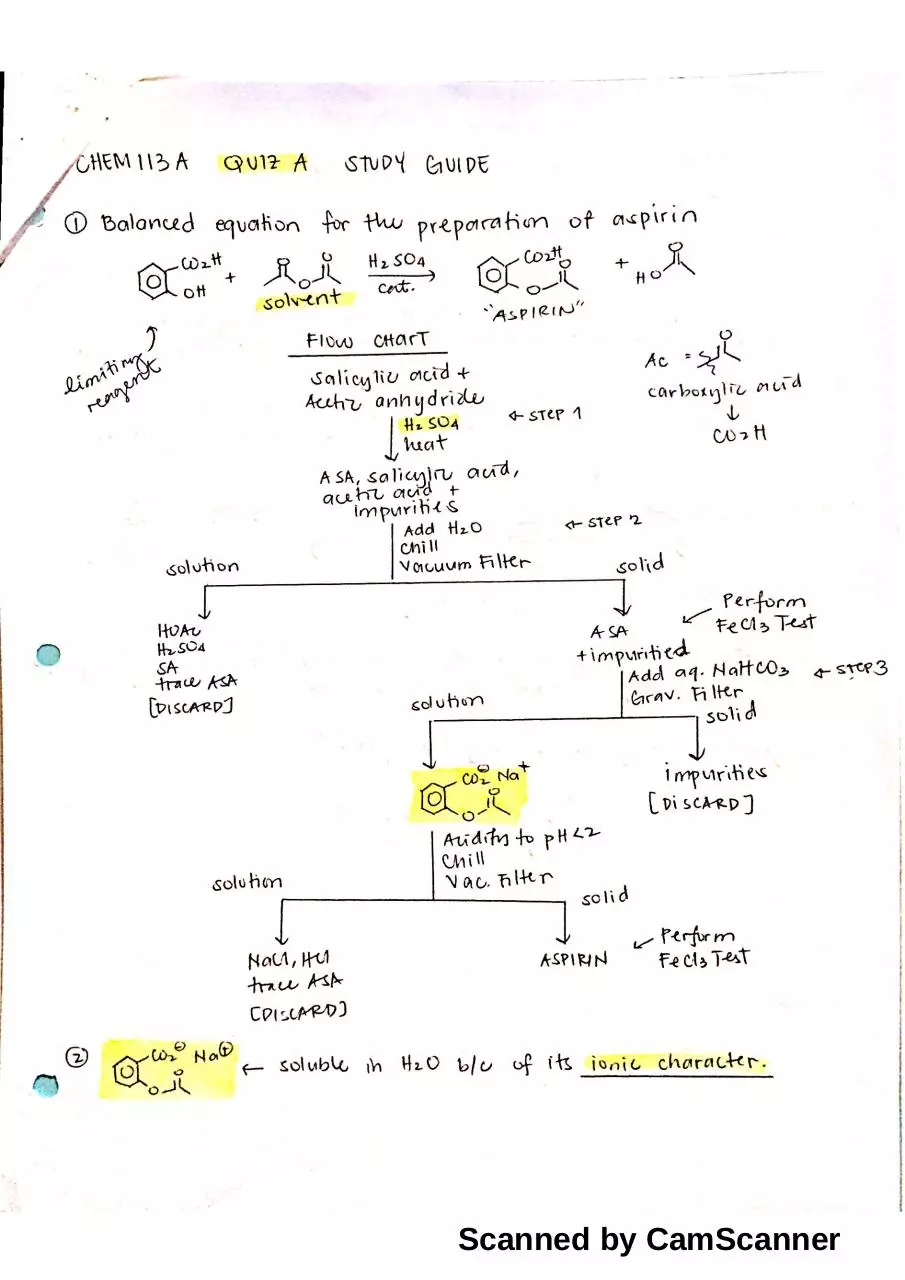 CHEM 113A QUIZ A STUDY GUIDE
① Balanced equation for the preparation of aspirin
CO2H
OH
+
O O
O
solvent
H2SO4
cat.
CO2H
O
O
"ASPIRIN"
+
HO
O
limiting
reagent
FLOW CHART
Ac =
O
carboxylic acid
↓
CO2H
Salicylic acid +
Acetic anhydride
H2SO4
heat
← STEP 1
ASA, salicylic acid,
acetic acid +
impurities
Add H2O
Chill
Vacuum Filter
← STEP 2
solution
solid
HOAc
H2SO4
SA
trace ASA
[DISCARD]
ASA
+ impurities
Perform
FeCl3 Test
Add aq. NaHCO3
Grav. Filter
← STEP 3
solution
solid
CO2⊖ Na+
O
O
impurities
[DISCARD]
Acidify to pH<2
Chill
Vac. Filter
solution
solid
NaCl, HCl
trace ASA
[DISCARD]
ASPIRIN
Perform
FeCl3 Test
② CO2⊖ Na⊕
O
O
← soluble in H2O b/c of its ionic character.
Scanned by CamScanner